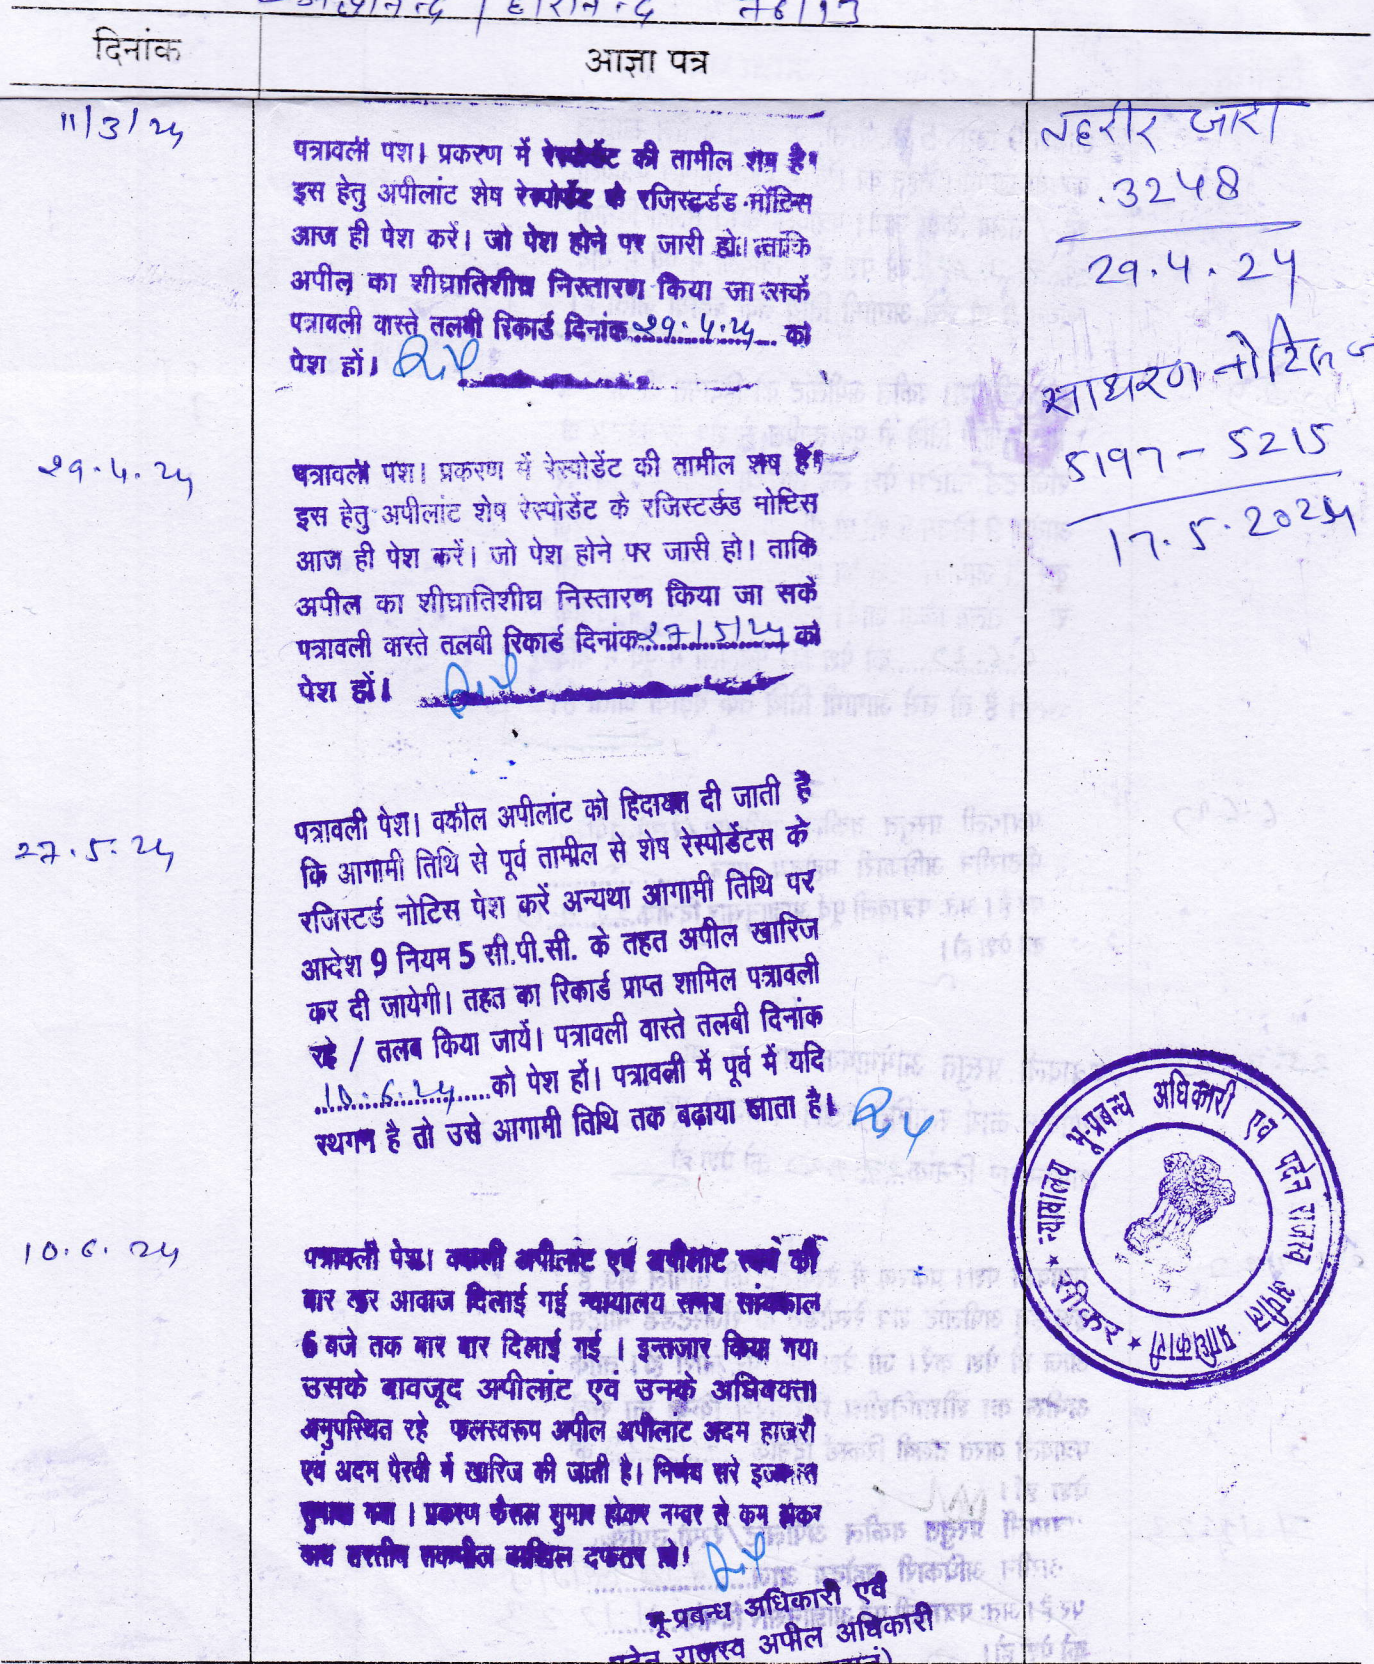 76/13
दिनांक
आज्ञा पत्र
11/3/24
पत्रावली पेश। प्रकरण में रेस्पोडेंट की तामील शेष है।
इस हेतु अपीलांट शेष रेस्पोडेंट के रजिस्टर्डड नोटिस
आज ही पेश करें। जो पेश होने पर जारी हो। ताकि
अपील का शीघ्रातिशीघ्र निस्तारण किया जा सकें
पत्रावली वास्ते तलबी रिकार्ड दिनांक 29.4.24 को
पेश हों।
तहरीर जारी
3248
29.4.24
साधारण नोटिस
5197-5215
17.5.2024
29.4.24
पत्रावली पेश। प्रकरण में रेस्पोडेंट की तामील शेष हैं।
इस हेतु अपीलांट शेष रेस्पोडेंट के रजिस्टर्डड नोटिस
आज ही पेश करें। जो पेश होने पर जारी हो। ताकि
अपील का शीघ्रातिशीघ्र निस्तारण किया जा सकें
पत्रावली वास्ते तलबी रिकार्ड दिनांक 27/5/24 को
पेश हों।
27.5.24
पत्रावली पेश। वकील अपीलांट को हिदायत दी जाती है
कि आगामी तिथि से पूर्व तामील से शेष रेस्पोर्डेटस के
रजिस्टर्ड नोटिस पेश करें अन्यथा आगामी तिथि पर
आदेश 9 नियम 5 सी.पी.सी. के तहत अपील खारिज
कर दी जायेगी। तहत का रिकार्ड प्राप्त शामिल पत्रावली
रहे / तलब किया जायें। पत्रावली वास्ते तलबी दिनांक
10.6.24 को पेश हों। पत्रावली में पूर्व में यदि
स्थगन है तो उसे आगामी तिथि तक बढ़ाया जाता है।
न्यायालय भू-प्रबन्ध अधिकारी एवं पदेन राजस्व अपील प्राधिकारी
★ सीकर ★
10.6.24
पत्रावली पेश। वकली अपीलांट एवं अपीलांट स्वयं की
बार बार आवाज दिलाई गई न्यायालय समय सांयकाल
6 बजे तक बार बार दिलाई गई । इन्तजार किया गया
उसके बावजूद अपीलांट एवं उनके अधिवक्ता
अनुपस्थित रहे फलस्वरूप अपील अपीलांट अदम हाजरी
एवं अदम पैरवी में खारिज की जाती है। निर्णय सरे इजलास
सुनाया गया । प्रकरण फैसल शुमार होकर नम्बर से कम होकर
बाद तरतीब तकमील दाखिल दफ्तर हो।
भू-प्रबन्ध अधिकारी एवं
पदेन राजस्व अपील अधिकारी